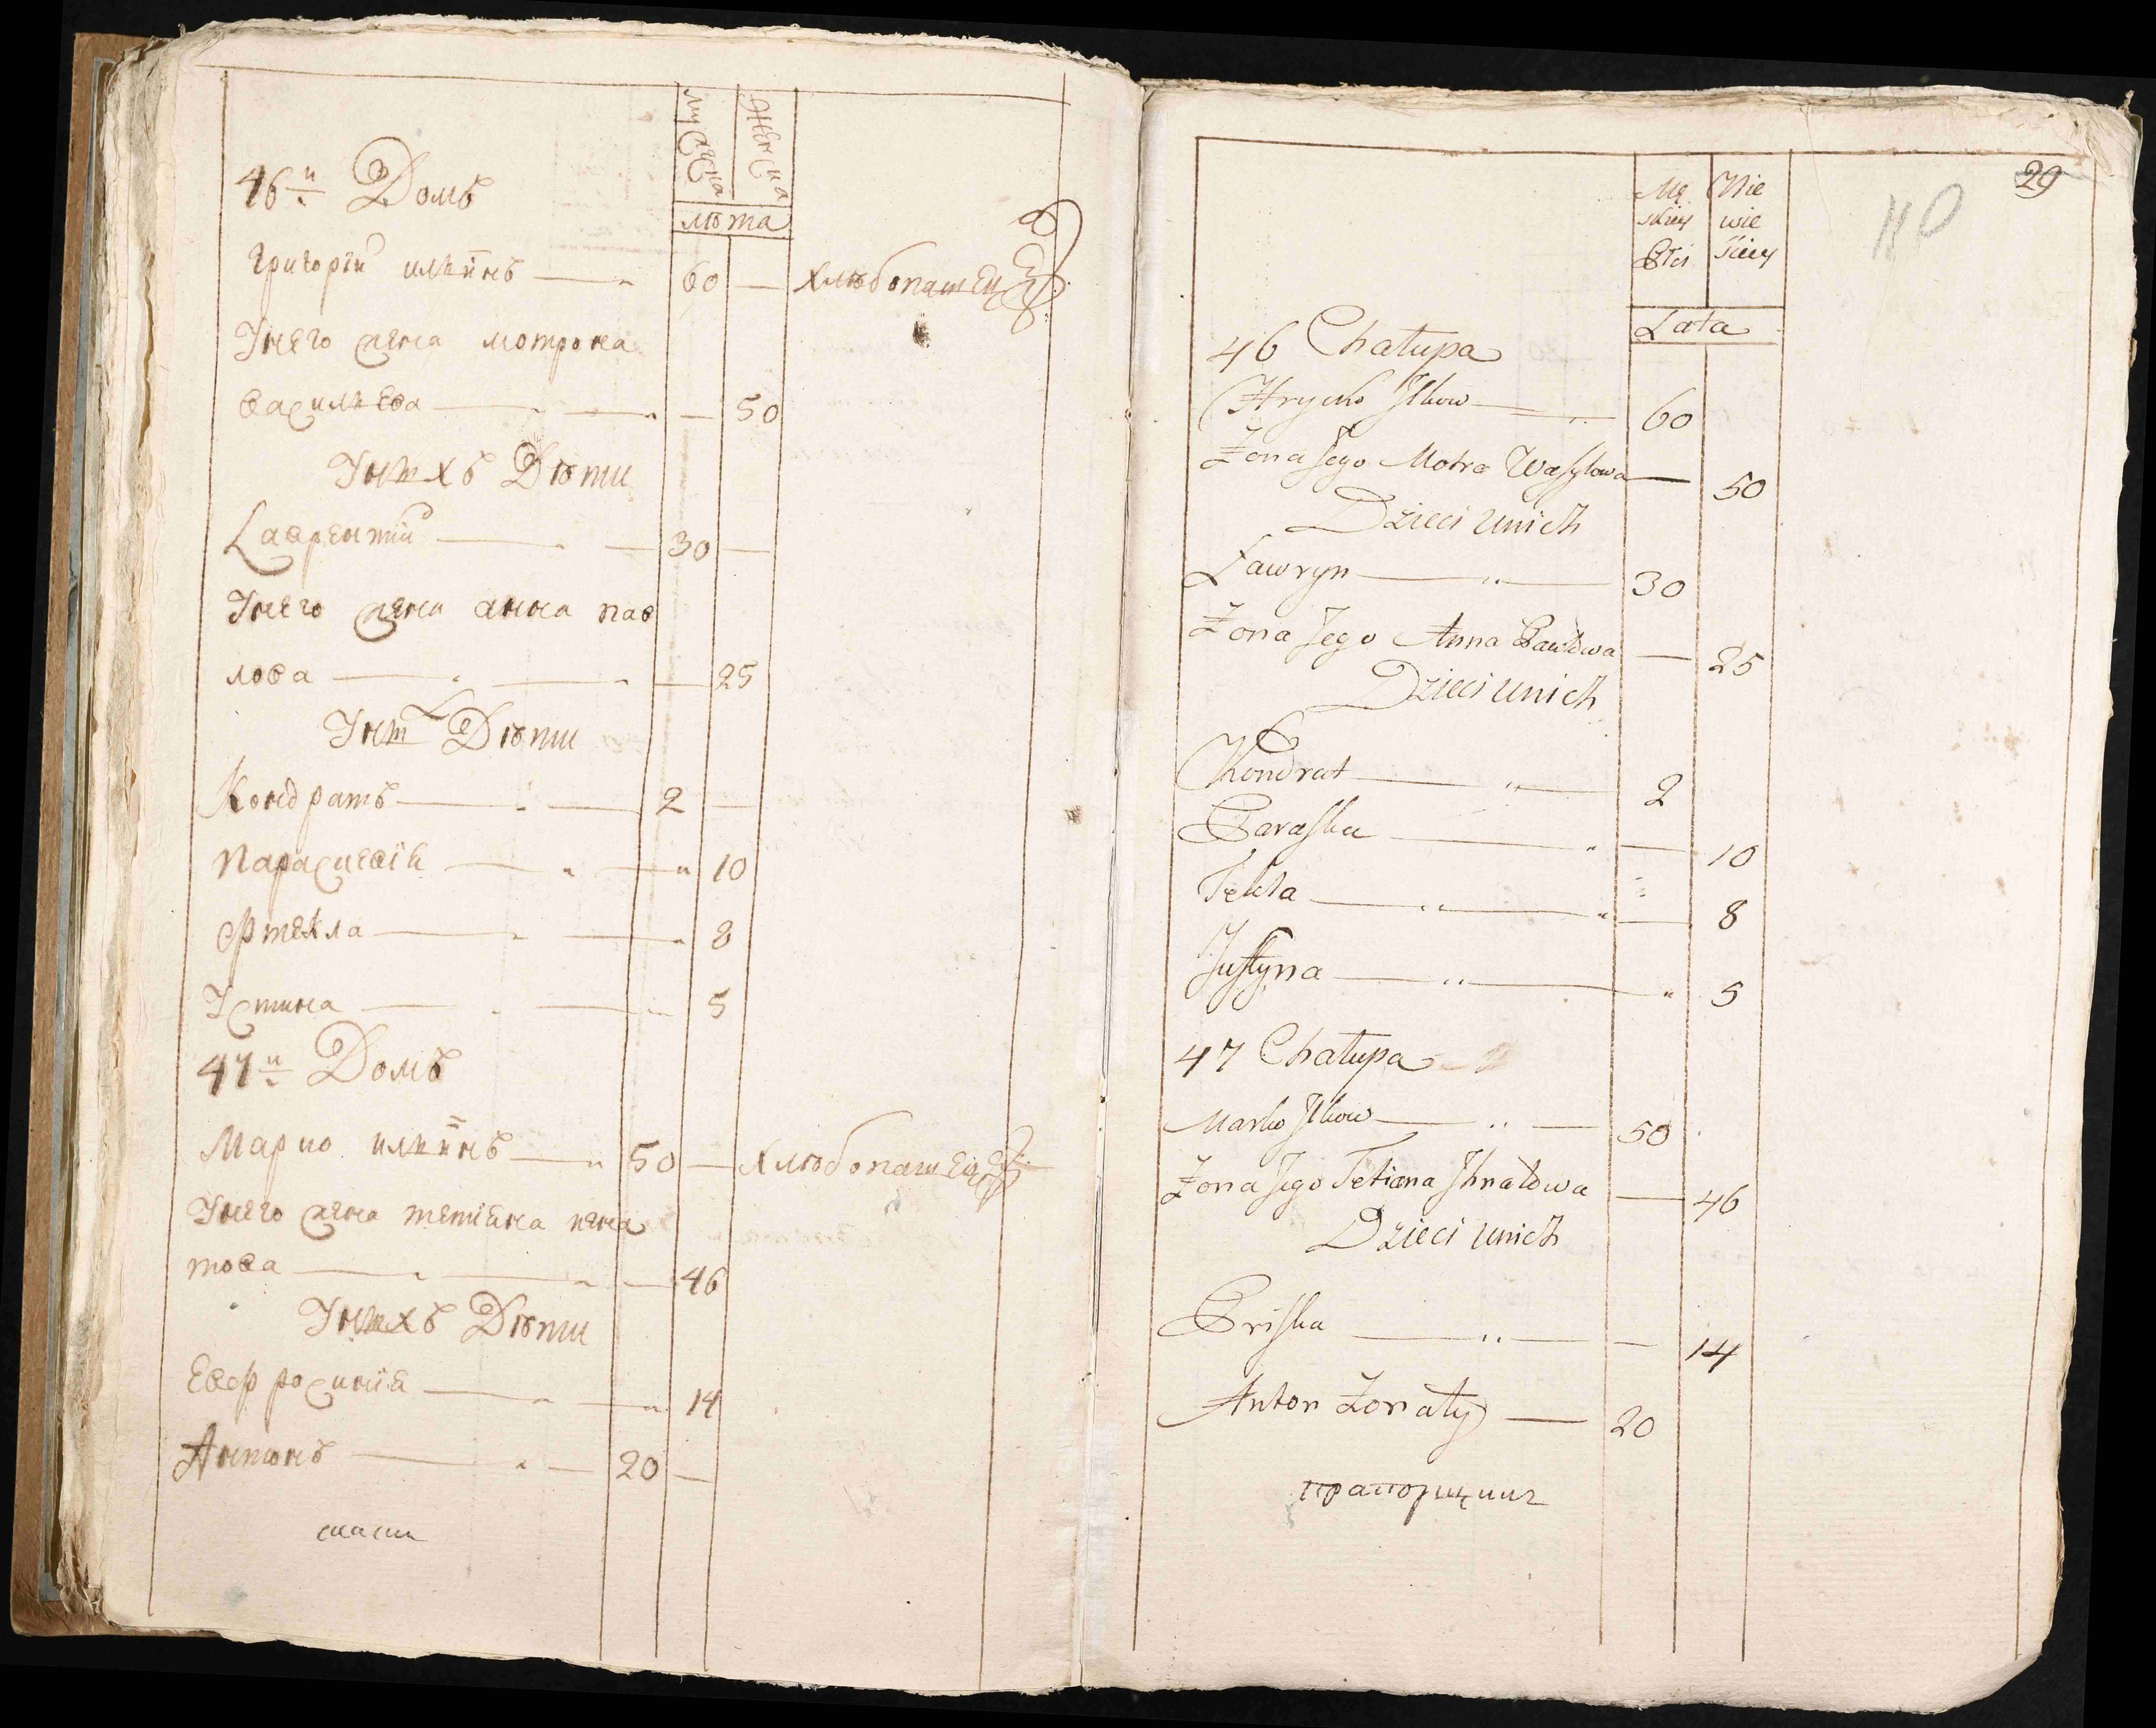 Мужеска
Женска
лѣта
46й Домъ
Григорѣй илкинъ 60 Хлѣбопашецъ
Унего жена мотрона
василкева 50
Унихъ Дѣти
Лаврентий 30
Унего жена анна пав
лова 25
Уних Дѣти
Кондратъ 2
Параскевія 10
Фтекла 8
Устина 5
47й Домъ
Марко илкинъ 50 Хлѣбопашецъ
Унего жена тетіана игна
това 46
Унихъ Дѣти
Евфросинія 14
Антонъ 20
29
Mę Nie
skiey wie
Płci skiey
Lata
46 Chałupa
Hrycko Ilkow 60
Żona Jego Motra Wasylowa 50
Dzieci unich
Ławryn 30
Żona Jego Anna Pawłowa 25
Dzieci unich
Kondrat 2
Paraska 10
Tekla 8
Justyna 5
47 Chałupa
Marko Ilkow 50
Żona Jego Tetiana Ihnatowa 46
Dzieci unich
Priska 14
Anton Żonaty 20
прапорщик